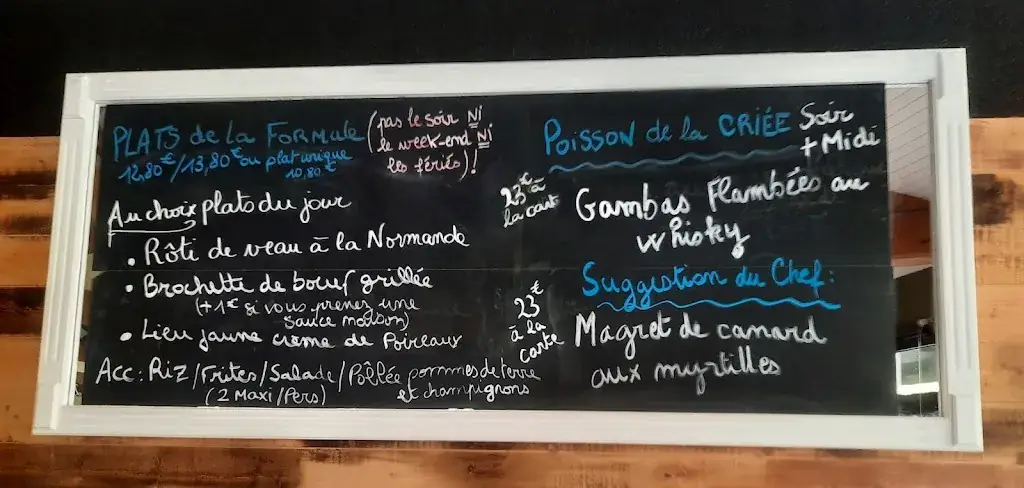 PLATS de la FORMULE
12,80€/13,80€ ou plat unique
10,80€
(pas le soir NI
le week-end NI
les fériés)!
Au choix plats du jour
• Rôti de veau à la Normande
• Brochette de boeuf grillée
(+1€ si vous prenez une
sauce maison)
• Lieu jaune crème de Poireaux
Acc: Riz/Frites/Salade/Poêlée pommes de terre
et champignons
(2 Maxi/Pers)
POISSON de la CRIÉE
Soir
+ Midi
23€ à
la carte
Gambas Flambées au
whisky
Suggestion du Chef:
23€
à la
carte
Magret de canard
aux myrtilles